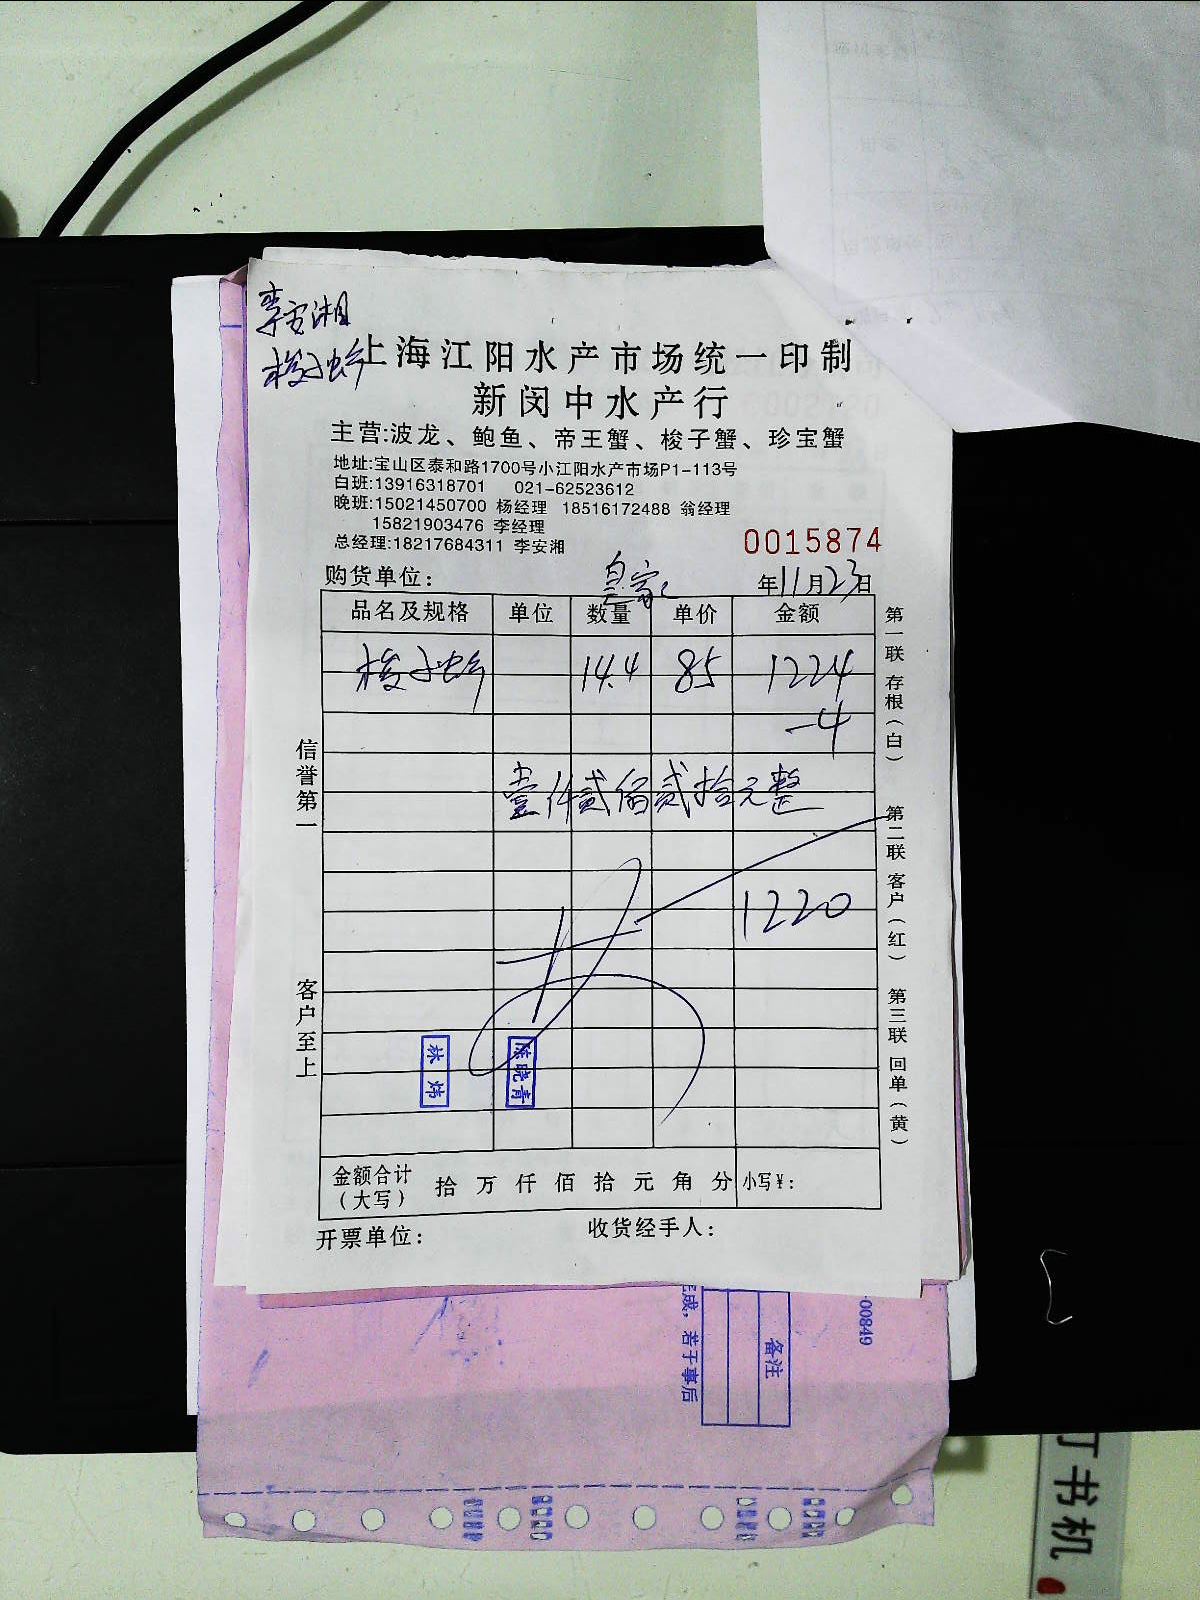 李安湘
梭子蟹
上海江阳水产市场统一印制
新闵中水产行
主营:波龙、鲍鱼、帝王蟹、梭子蟹、珍宝蟹
地址:宝山区泰和路1700号小江阳水产市场P1-113号
白班:13916318701 021-62523612
晚班:15021450700 杨经理 18516172488 翁经理
15821903476 李经理
总经理:18217684311 李安湘
0015874
购货单位: 皇家 年11月23日
品名及规格 单位 数量 单价 金额
梭子蟹 14.4 85 1224
-4
壹仟贰佰贰拾元整
1220
信誉第一
客户至上
第一联 存根(白)
第二联 客户(红)
第三联 回单(黄)
林炜
陈晓青
金额合计(大写) 拾 万 仟 佰 拾 元 角 分 小写¥:
开票单位: 收货经手人:
完成,若于事后
备注
00849
订书机